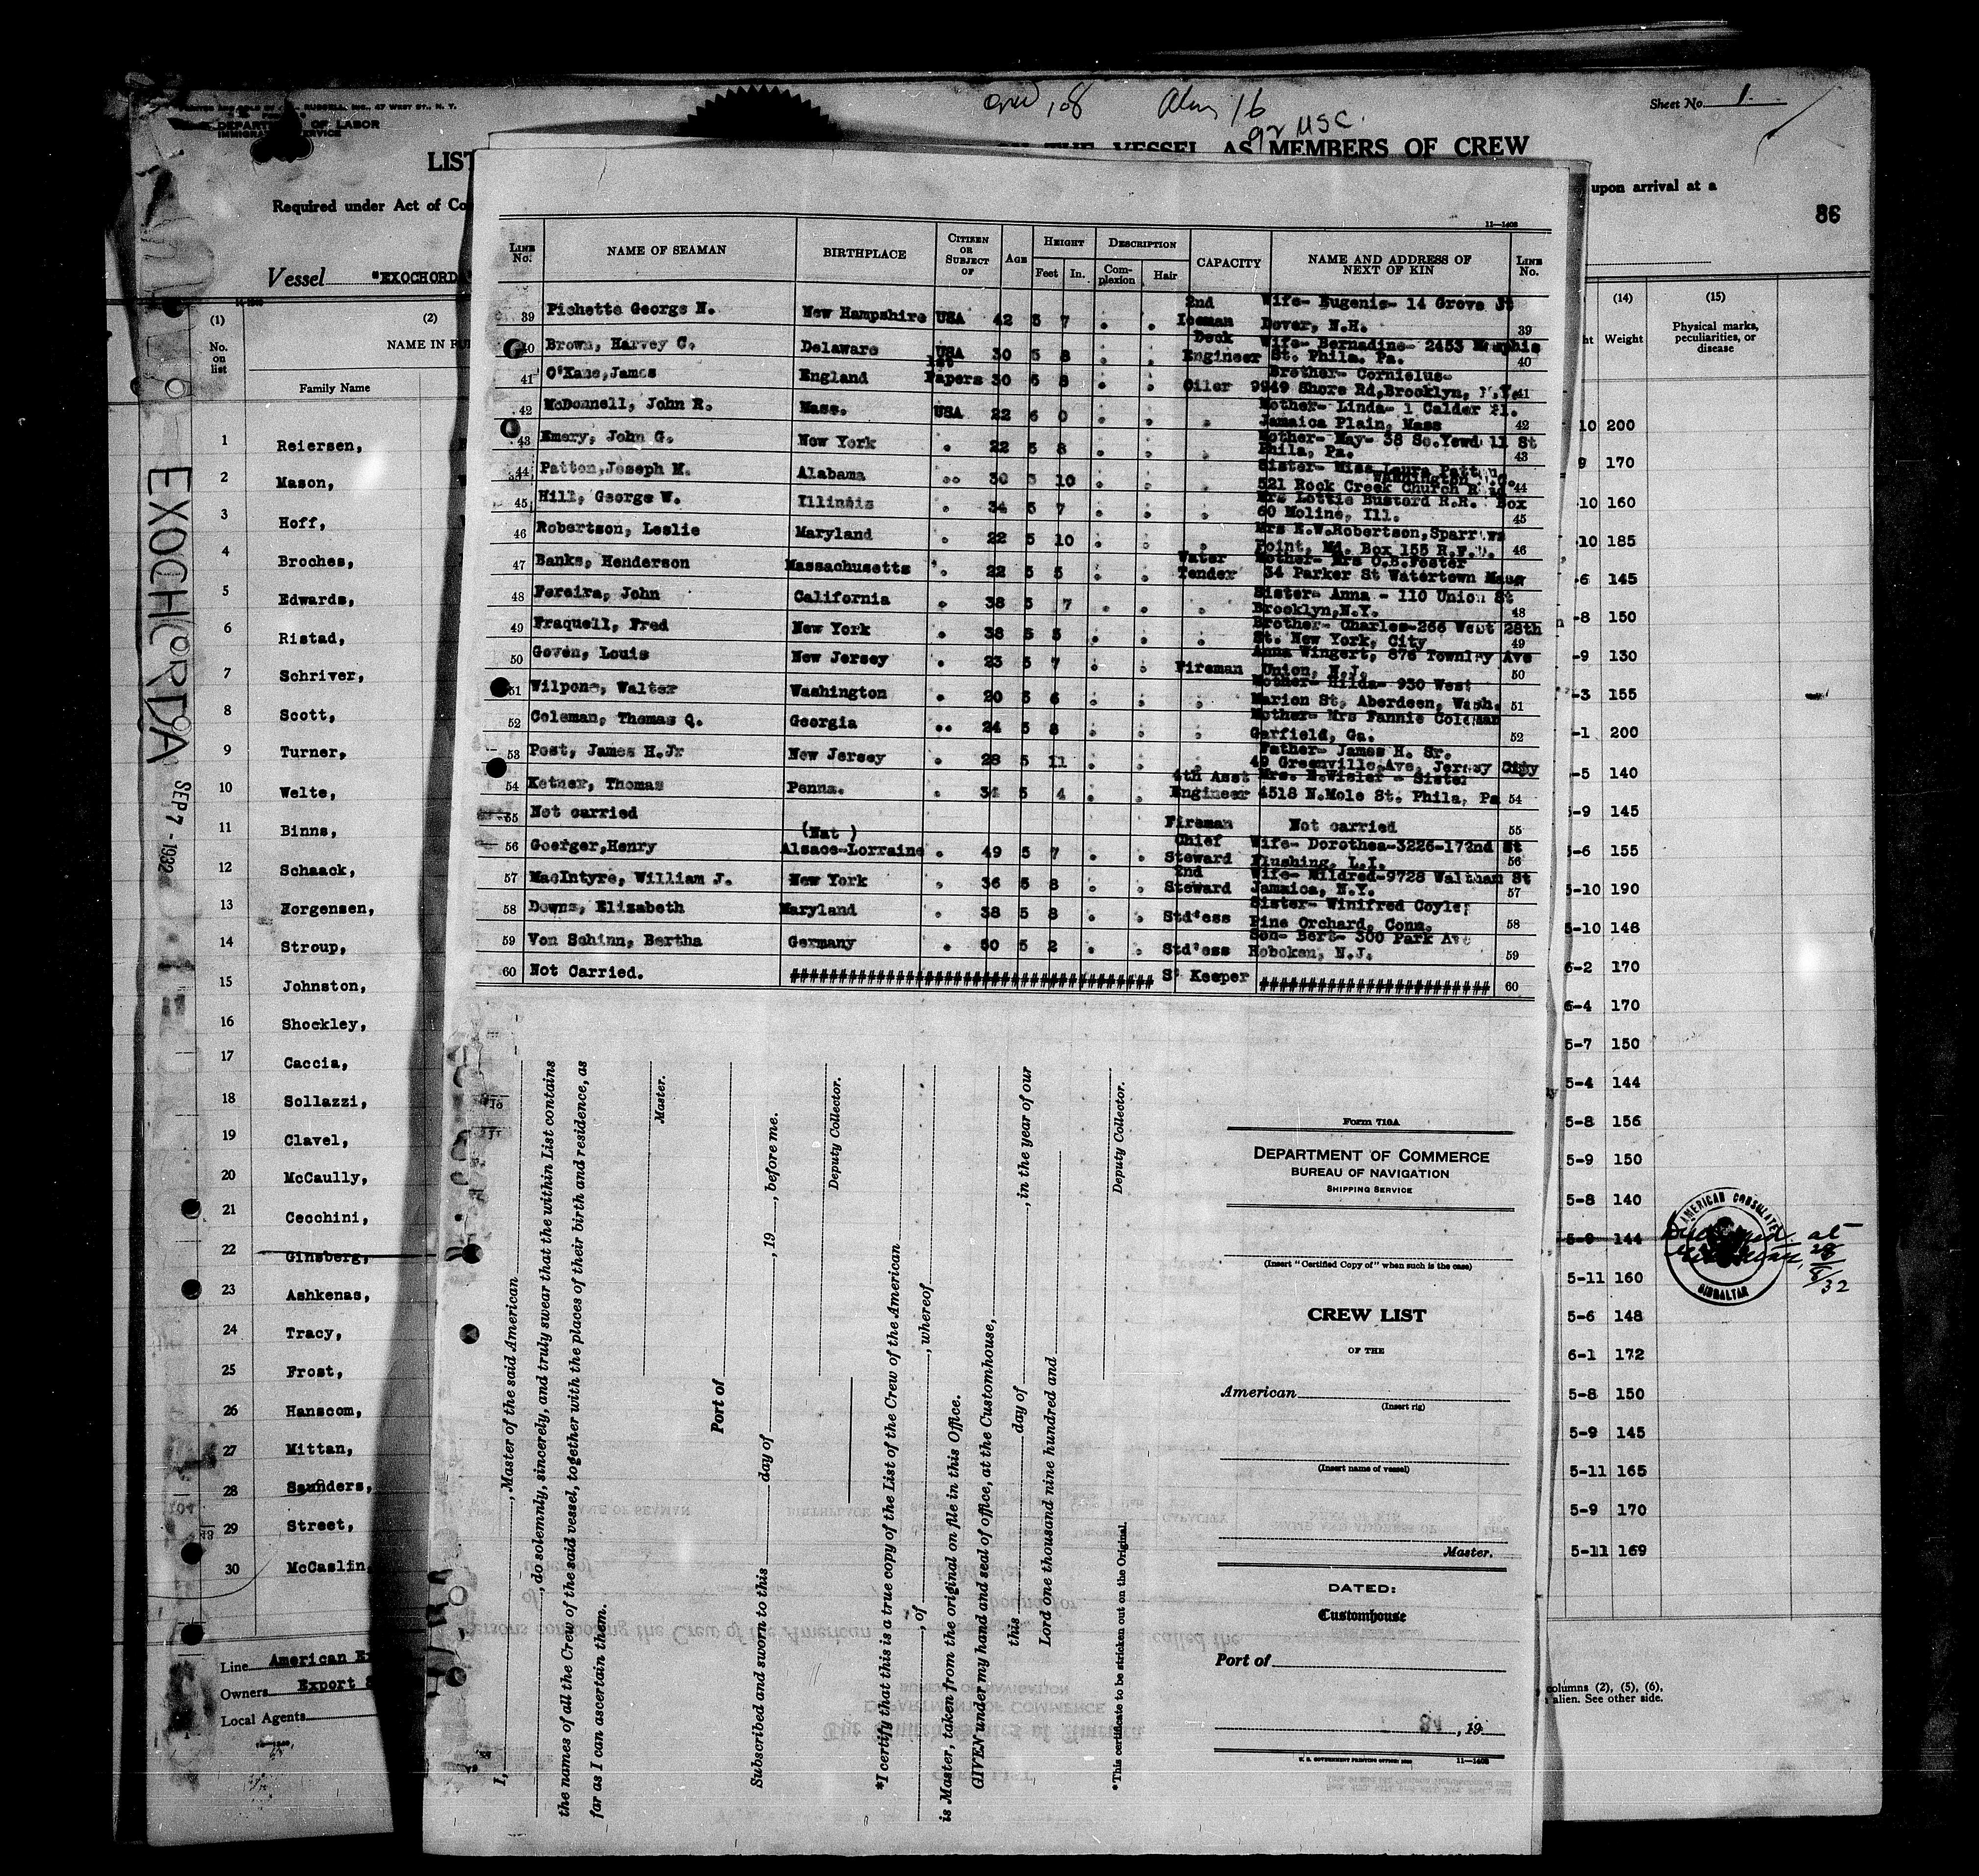 PRINTED AND SOLD BY RUSSELL, INC., 47 WEST ST., N. Y.
OF LABOR
Crew 108 Alien 16
92 USC.
Sheet No. 1.
LIST
THE VESSEL AS MEMBERS OF CREW
Required under Act of Co
upon arrival at a
86
Vessel "EXOCHORDA"
EXOCHORDA SEP 7 - 1932
11—1403
LINE No. NAME OF SEAMAN BIRTHPLACE CITIZEN OR SUBJECT OF AGE HEIGHT Feet In. DESCRIPTION Complexion Hair CAPACITY NAME AND ADDRESS OF NEXT OF KIN LINE No.
39 Pichette George N. New Hampshire USA 42 5 7 2nd Iceman Wife- Eugenie- 14 Grove St Dover, N.H. 39
40 Brown, Harvey C. Delaware USA 30 5 8 Deck Engineer Wife- Bernadine- 2453 Memphis St. Phila. Pa. 40
41 O'Kane, James England 1st Papers 30 5 8 Oiler Brother- Cornielus- 9949 Shore Rd, Brooklyn, N.Y. 41
42 McDonnell, John R. Mass. USA 22 6 0 Mother- Linda- 1 Calder Pl. Jamaica Plain, Mass 42
43 Emery, John G. New York 22 5 8 Mother- May- 38 So. 11 St Phila, Pa. 43
44 Patton, Joseph M. Alabama 30 5 10 Sister- Miss Laura Patton 521 Rock Creek Church Washington 44
45 Hill, George W. Illinois 34 5 7 Mrs Lottie Bustard R.R. Box 60 Moline, Ill. 45
46 Robertson, Leslie Maryland 22 5 10 Mrs E.W.Robertson, Sparrows Point, Md. Box 155 R.F.D. 46
47 Banks, Henderson Massachusetts 22 5 5 Water Tender Mother- Mrs O.B.Foster 34 Parker St Watertown Mass
48 Fereira, John California 38 5 7 Sister- Anna - 110 Union St Brooklyn,N.Y. 48
49 Fraquell, Fred New York 38 5 5 Brother- Charles-266 West 28th St. New York, City 49
50 Goven, Louis New Jersey 23 5 7 Fireman Anna Wingert, 876 Townley Ave Union, N.J. 50
51 Wilpone, Walter Washington 20 5 6 Mother- Hilda- 930 West Marion St, Aberdeen, Wash. 51
52 Coleman, Thomas Q. Georgia 24 5 8 Mother- Mrs Fannie Coleman Garfield, Ga. 52
53 Post, James H.Jr New Jersey 28 5 11 Father- James H. Sr. 49 Greenville Ave, Jersey City
54 Ketner, Thomas Penna. 34 5 4 4th Asst Engineer Mrs. E.Wisler - Sister 4518 N.Mole St. Phila, Pa 54
55 Not carried Fireman Not carried 55
56 Goerger,Henry (Nat ) Alsace-Lorraine 49 5 7 Chief Steward Wife- Dorothea-3226-172nd St Flushing, L.I. 56
57 MacIntyre, William J. New York 36 5 8 2nd Steward Wife- Mildred-9728 Waltham St Jamaica, N.Y. 57
58 Downs, Elizabeth Maryland 38 5 8 Std'ess Sister- Winifred Coyle; Pine Orchard, Conn. 58
59 Von Schinn, Bertha Germany 50 5 2 Std'ess Son- Bert- 300 Park Ave Hoboken, N.J. 59
60 Not Carried. S' Keeper 60
(1) No. on list
(2) NAME IN FU
Family Name
(14) Weight
(15) Physical marks, peculiarities, or disease
1 Reiersen, 10 200
2 Mason, 9 170
3 Hoff, -10 160
4 Broches, -10 185
5 Edwards, -6 145
6 Ristad, -8 150
7 Schriver, -9 130
8 Scott, -3 155
9 Turner, -1 200
10 Welte, -5 140
11 Binns, 5-9 145
12 Schaack, 5-6 155
13 Horgensen, 5-10 190
14 Stroup, 5-10 148
15 Johnston, 6-2 170
16 Shockley, 6-4 170
17 Caccia, 5-7 150
18 Sollazzi, 5-4 144
19 Clavel, 5-8 156
20 McCaully, 5-9 150
21 Cecchini, 5-8 140
22 Ginsberg, 5-9 144
23 Ashkenas, 5-11 160
24 Tracy, 5-6 148
25 Frost, 6-1 172
26 Hanscom, 5-8 150
27 Mittan, 5-9 145
28 Saunders, 5-11 165
29 Street, 5-9 170
30 McCaslin, 5-11 169
AMERICAN CONSULATE
GIBRALTAR
at
28/8/32
Line American Ex
Owners Export S
Local Agents
columns (2), (5), (6),
alien. See other side.
I, , Master of the said American
, do solemnly, sincerely, and truly swear that the within List contains
the names of all the Crew of the said vessel, together with the places of their birth and residence, as
far as I can ascertain them.
Master.
Port of
Subscribed and sworn to this day of , 19 , before me.
Deputy Collector.
*I certify that this is a true copy of the List of the Crew of the American
, of , whereof
is Master, taken from the original on file in this Office.
GIVEN under my hand and seal of office, at the Customhouse,
this day of , in the year of our
Lord one thousand nine hundred and
Deputy Collector.
*This certificate to be stricken out on the Original.
Form 710A
DEPARTMENT OF COMMERCE
BUREAU OF NAVIGATION
SHIPPING SERVICE
(Insert "Certified Copy of" when such is the case)
CREW LIST
OF THE
American
(Insert rig)
(Insert name of vessel)
Master.
DATED:
Customhouse
Port of
, 19
U. S. GOVERNMENT PRINTING OFFICE 11—1403